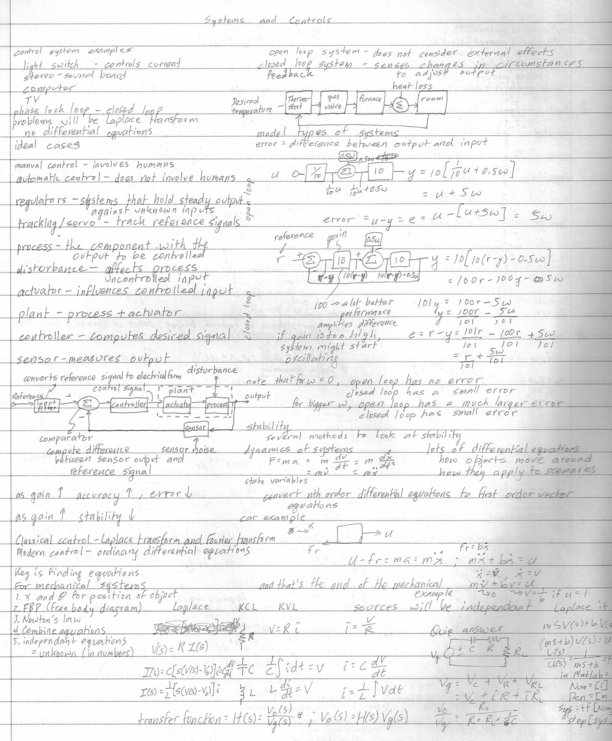 Systems and Controls
control system examples
light switch - controls current
stereo - sound board
computer
TV
phase lock loop - closed loop
problems will be Laplace transform
no differential equations
ideal cases
open loop system - does not consider external effects
closed loop system - senses changes in circumstances
feedback to adjust output
heat loss
Desired temperature
Thermostat
gas valve
furnace
Σ
room
model types of systems
error = difference between output and input
manual control - involves humans
automatic control - does not involve humans
regulators - systems that hold steady output
against unknown inputs
tracking/servo - track reference signals
process - the component with the
output to be controlled
disturbance - affects process
uncontrolled input
actuator - influences controlled input
plant - process + actuator
controller - computes desired signal
sensor - measures output
open loop
u
1/10
Σ
0.5w
10
1/10 u
1/10 u + 0.5w
y = 10[1/10 u + 0.5w]
= u + 5w
error = u - y = e = u - [u + 5w] = 5w
closed loop
reference
gain
r
+
Σ
10
Σ
0.5w
10
r-y
10(r-y)
10(r-y)-0.5w
y = 10[10(r-y) - 0.5w]
= 100r - 100y - 5w
100 → a lot better
performance
amplifies difference
if gain is too high,
system might start
oscillating
101y = 100r - 5w
y = 100r/101 - 5w/101
e = r - y = 101r/101 - 100r/101 + 5w/101
= r/101 + 5w/101
converts reference signal to electrical form
disturbance
control signal
plant
Reference
input filter
Σ
controller
actuator
process
output
sensor
comparator
compute difference
between sensor output and
reference signal
sensor noise
note that for w = 0, open loop has no error
closed loop has a small error
for bigger w, open loop has a much larger error
closed loop has small error
stability
several methods to look at stability
dynamics of systems
lots of differential equations
F = ma = m dv/dt = m d²x/dt²
= mv̇ = mẍ
how objects move around
how they apply to scenarios
state variables
convert nth order differential equations to first order vector
equations
as gain ↑ accuracy ↑, error ↓
as gain ↑ stability ↓
car example
x
u
Fr
Classical control - Laplace transform and Fourier transform
Modern control - ordinary differential equations
fr = bẋ
u - fr = ma = mẍ ; mẍ + bẋ = u
Key is finding equations
For mechanical systems
1. x and θ for position of object
2. FBD (free body diagram)
3. Newton's law
4. Combine equations
5. independent equations
= unknown (in numbers)
and that's the end of the mechanical
example
mv̇ + bv = u
if u = 1
Laplace
KCL
KVL
sources will be independent
Laplace it
V(s) = R I(s)
R
V = R i
i = V/R
Quiz answer
C
1/C ∫ i dt = v
i = C dv/dt
L
L di/dt = v
i = 1/L ∫ V dt
Vg
R
C
RL
Vg = Vc + VR + VRL
= Vc + iR + iRL
in Matlab
transfer function = H(s) = Vo(s)/Vg(s) ; Vo(s) = H(s) Vg(s)